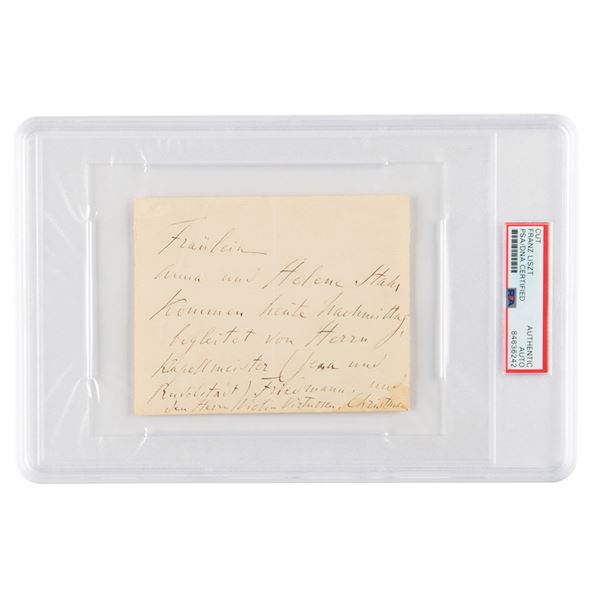 Fräulein
Anna und Helene Stahr
Kommen heute Nachmittag,
begleitet von Herrn
Kapellmeister (Jena und
Rudolstadt) Friedmann, und
den Herrn Violin Virtuosen,
CUT
FRANZ LISZT
PSA/DNA CERTIFIED
PSA
AUTHENTIC
AUTO
84636242